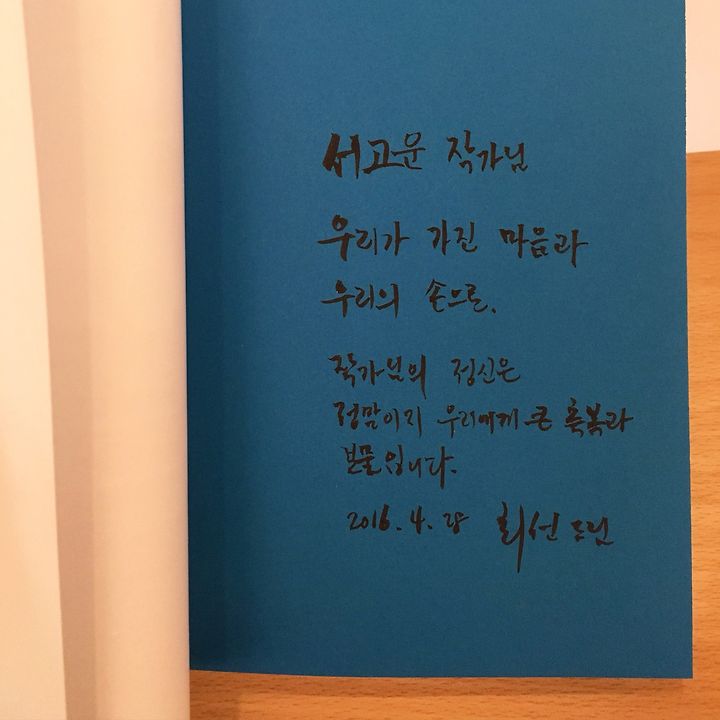 서고운 작가님
우리가 가진 마음과
우리의 손으로.
작가님의 정신은
정말이지 우리에게 큰 축복과
보물입니다.
2016. 4. 희선 드림